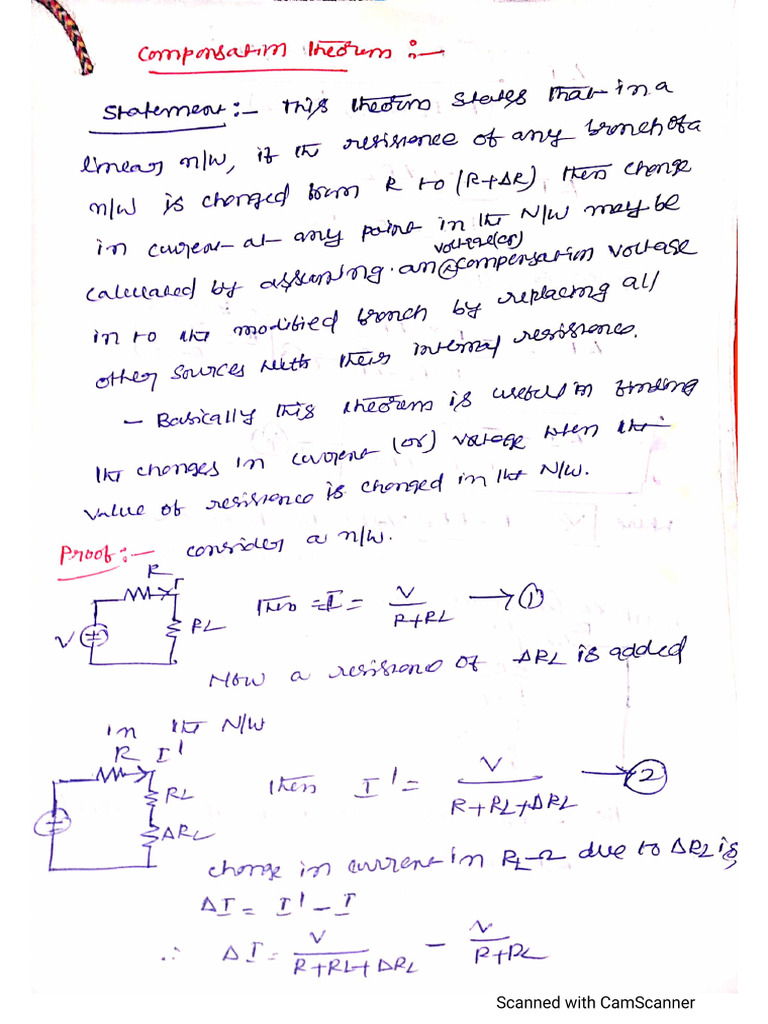 Compensation theorem :-
Statement:- This theorem states that in a
linear n/w, if the resistance of any branch of a
n/w is changed from R to (R+ΔR) then change
in current at any point in the N/W may be
voltage (or)
calculated by assuming an compensation voltage
in to the modified branch by replacing all
other sources with their internal resistance.
- Basically this theorem is useful in finding
the changes in current (or) voltage when the
value of resistance is changed in the N/W.
Proof:- consider a n/w.
R I
V RL
then = I = V/(R+RL) → ①
Now a resistance of ΔRL is added
in the N/W
R I'
RL
ΔRL
then I' = V/(R+RL+ΔRL) → ②
change in current in RL-Ω due to ΔRL is,
ΔI = I' - I
∴ ΔI = V/(R+RL+ΔRL) - V/(R+RL)
Scanned with CamScanner